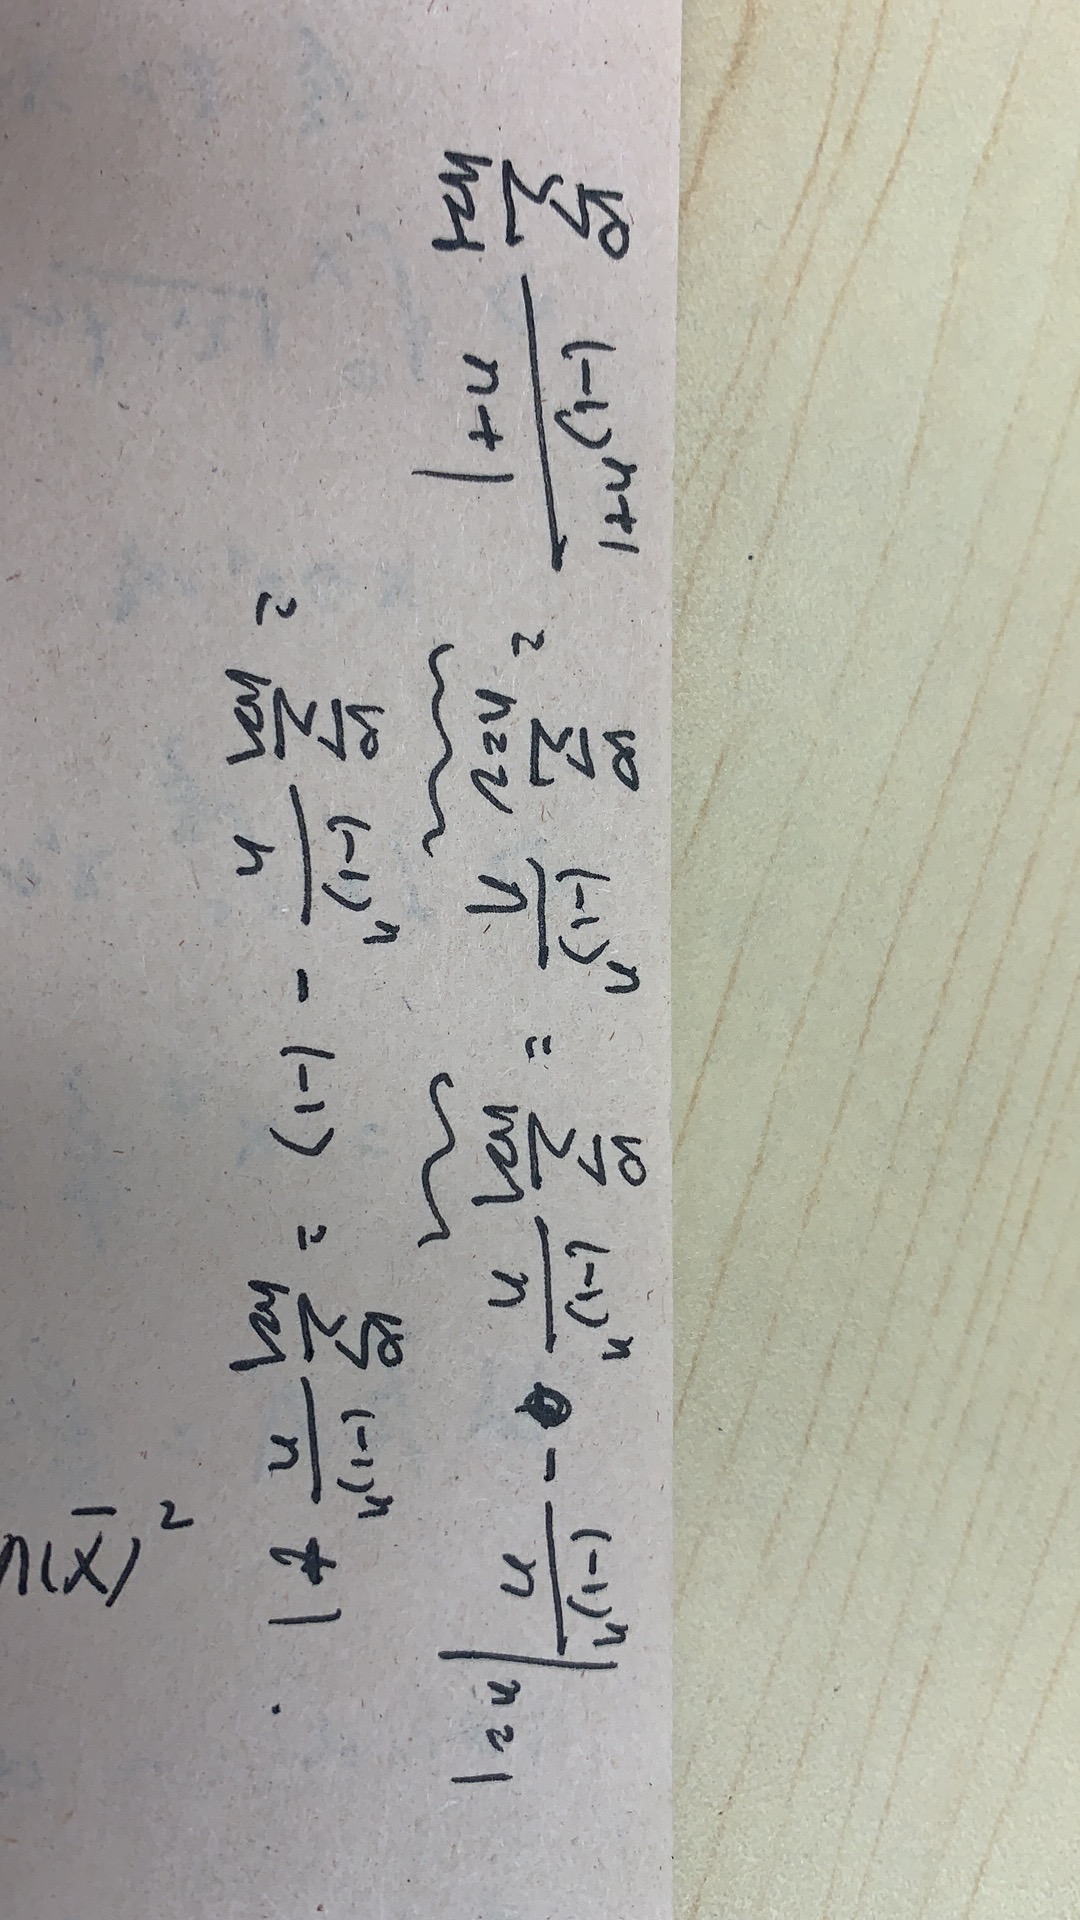 ∑_{n=1}^{∞} (-1)^{n+1}/(n+1) = ∑_{n=2}^{∞} (-1)^n/n = ∑_{n=1}^{∞} (-1)^n/n - (-1)^n/n |_{n=1}
= ∑_{n=1}^{∞} (-1)^n/n - (-1) = ∑_{n=1}^{∞} (-1)^n/n + 1.
n(x̄)²